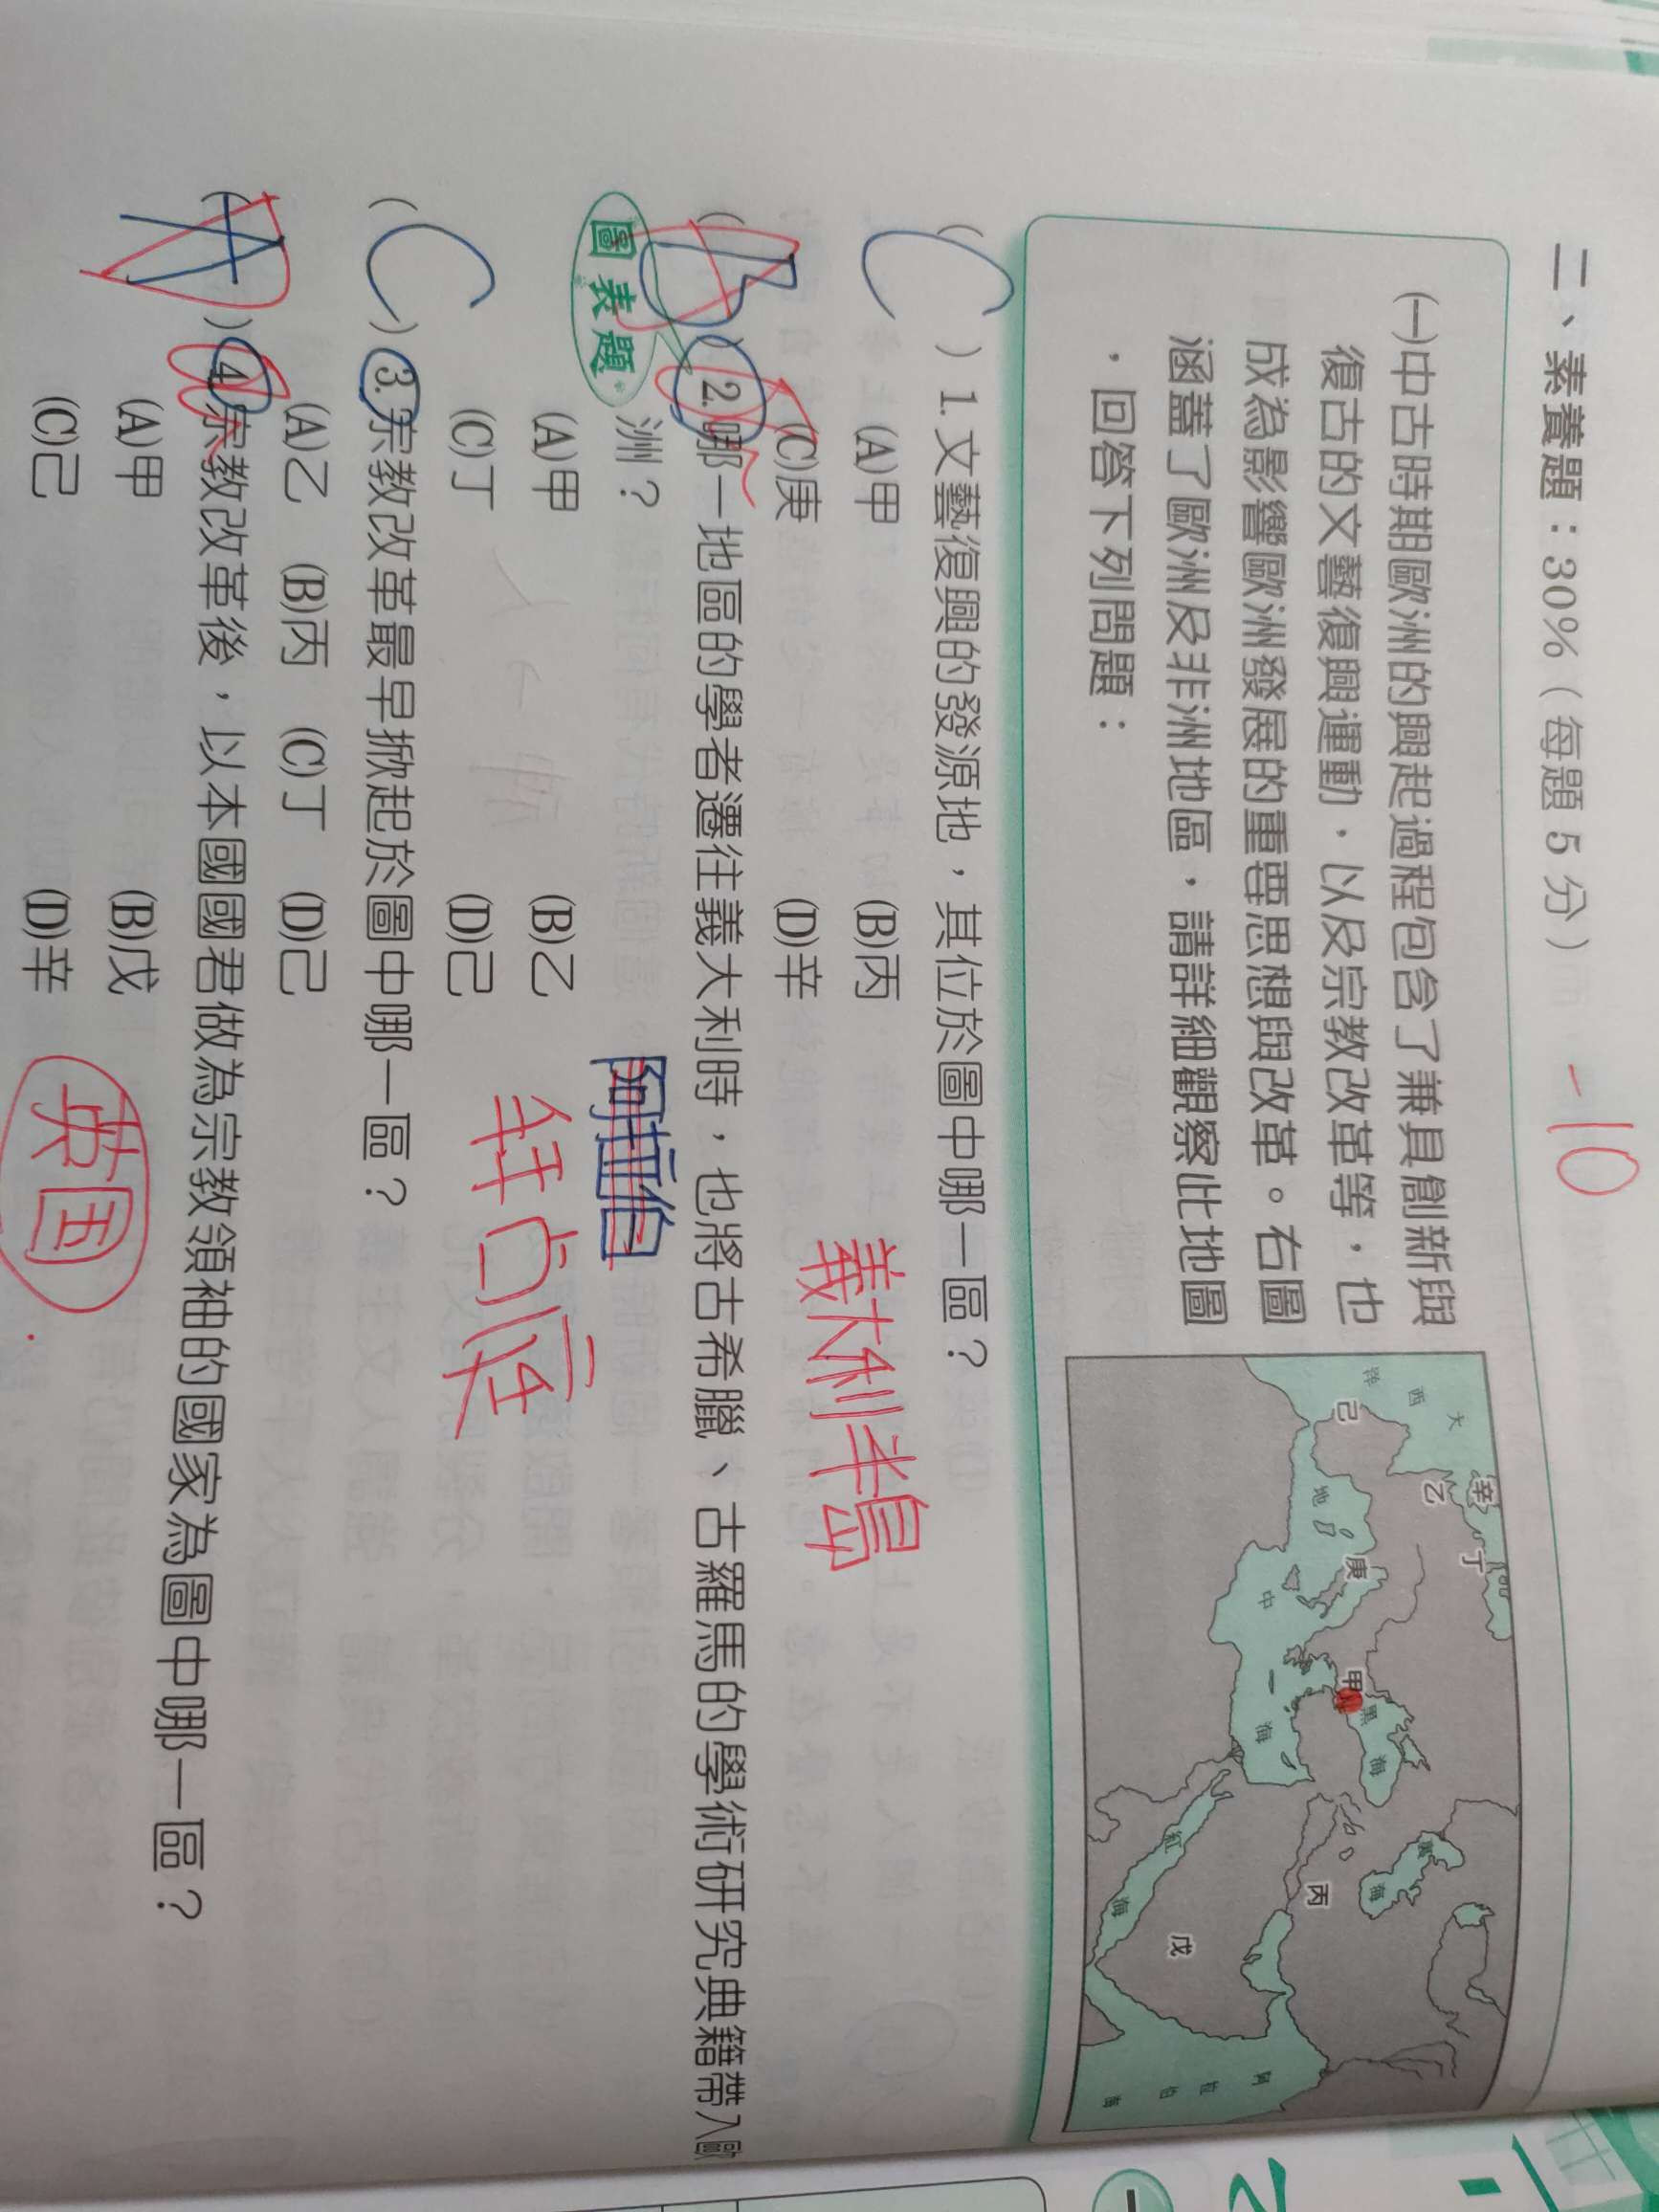 二、素養題：30%（每題 5 分）
-10
㈠中古時期歐洲的興起過程包含了兼具創新與
復古的文藝復興運動，以及宗教改革等，也
成為影響歐洲發展的重要思想與改革。右圖
涵蓋了歐洲及非洲地區，請詳細觀察此地圖
，回答下列問題：
大
西
洋
辛
丁
乙
己
地
庚
中
海
甲
黑
海
裏
海
丙
紅
海
戊
阿
拉
伯
海
(C) 1. 文藝復興的發源地，其位於圖中哪一區？
(A)甲 (B)丙
(C)庚 (D)辛
義大利半島
2. 哪一地區的學者遷往義大利時，也將古希臘、古羅馬的學術研究典籍帶入歐
洲？
圖表題
(A)甲 (B)乙
(C)丁 (D)己
(C) 3. 宗教改革最早掀起於圖中哪一區？
(A)乙 (B)丙 (C)丁 (D)己
(A) 4. 宗教改革後，以本國國君做為宗教領袖的國家為圖中哪一區？
(A)甲 (B)戊
(C)己 (D)辛
英国